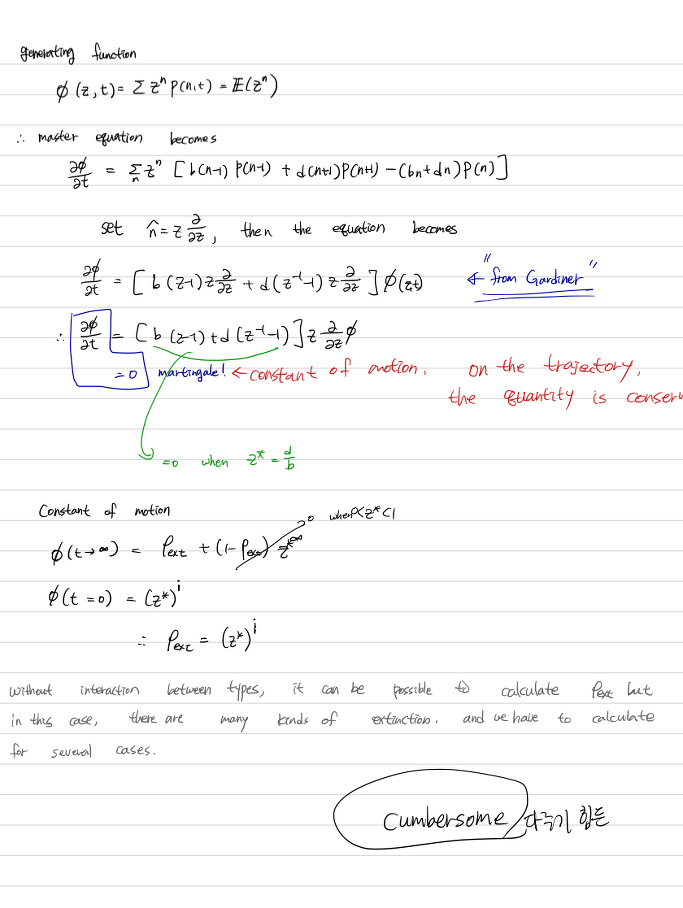 generating function
ϕ(z,t) = Σ zⁿ P(n,t) = 𝔼(zⁿ)
∴ master equation becomes
∂ϕ/∂t = Σₙ zⁿ [b(n-1) P(n-1) + d(n+1)P(n+1) - (bn+dn)P(n)]
set n̂ = z ∂/∂z, then the equation becomes
∂ϕ/∂t = [b(z-1)z ∂/∂z + d(z⁻¹-1) z ∂/∂z] ϕ(z,t) ← "from Gardiner"
∴ ∂ϕ/∂t = [b(z-1) + d(z⁻¹-1)] z ∂/∂z ϕ
= 0 martingale! ← constant of motion. on the trajectory,
the quantity is conser
=0 when z* = d/b
Constant of motion
ϕ(t→∞) = Pext + (1-Pext) z*^∞ 0 when z*<1
ϕ(t=0) = (z*)ⁱ
∴ Pext = (z*)ⁱ
without interaction between types, it can be possible to calculate Pext but
in this case, there are many kinds of extinction. and we have to calculate
for several cases.
Cumbersome 다루기 힘든